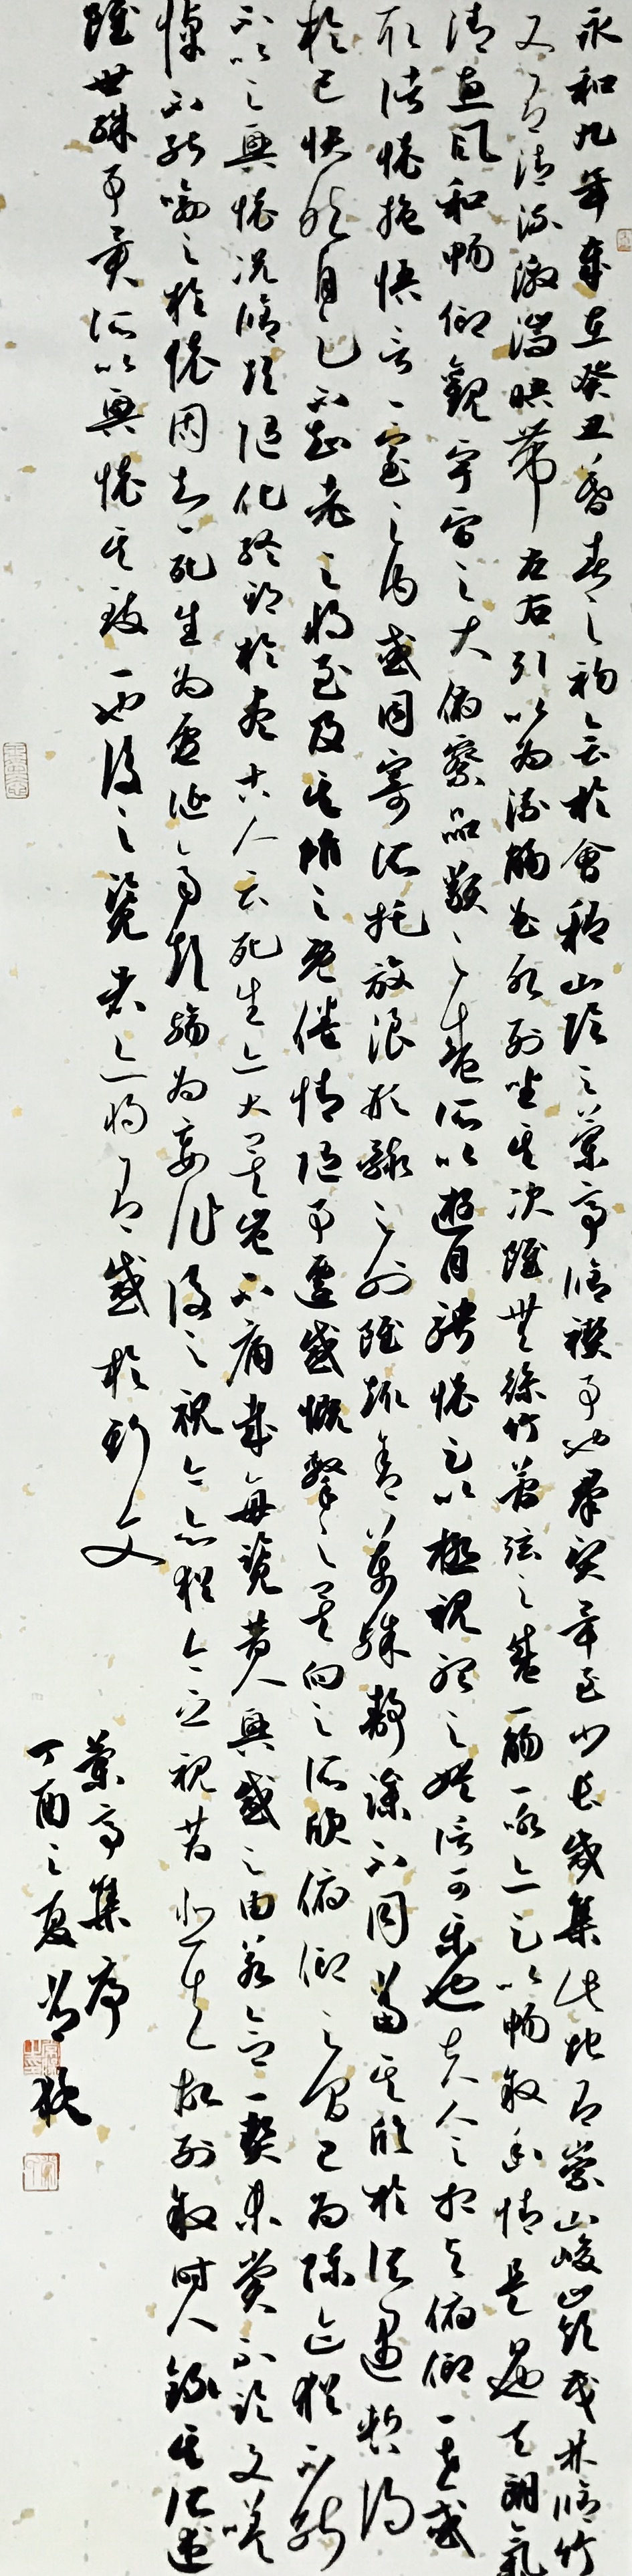 永和九年歲在癸丑暮春之初會於會稽山陰之蘭亭脩禊事也羣賢畢至少長咸集此地有崇山峻嶺茂林脩竹
又有清流激湍映帶左右引以為流觴曲水列坐其次雖無絲竹管弦之盛一觴一詠亦足以暢敘幽情是日也天朗氣
清惠風和暢仰觀宇宙之大俯察品類之盛所以遊目騁懷足以極視聽之娛信可樂也夫人之相與俯仰一世或
取諸懷抱悟言一室之內或因寄所托放浪形骸之外雖趣舍萬殊靜躁不同當其欣於所遇暫得
於己快然自足不知老之將至及其所之既倦情隨事遷感慨繫之矣向之所欣俯仰之間已為陳迹猶不能
不以之興懷況脩短隨化終期於盡古人云死生亦大矣豈不痛哉每覽昔人興感之由若合一契未嘗不臨文嗟
悼不能喻之於懷固知一死生為虛誕齊彭殤為妄作後之視今亦猶今之視昔悲夫故列敘時人錄其所述
雖世殊事異所以興懷其致一也後之覽者亦將有感於斯文
蘭亭集序
丁酉之夏